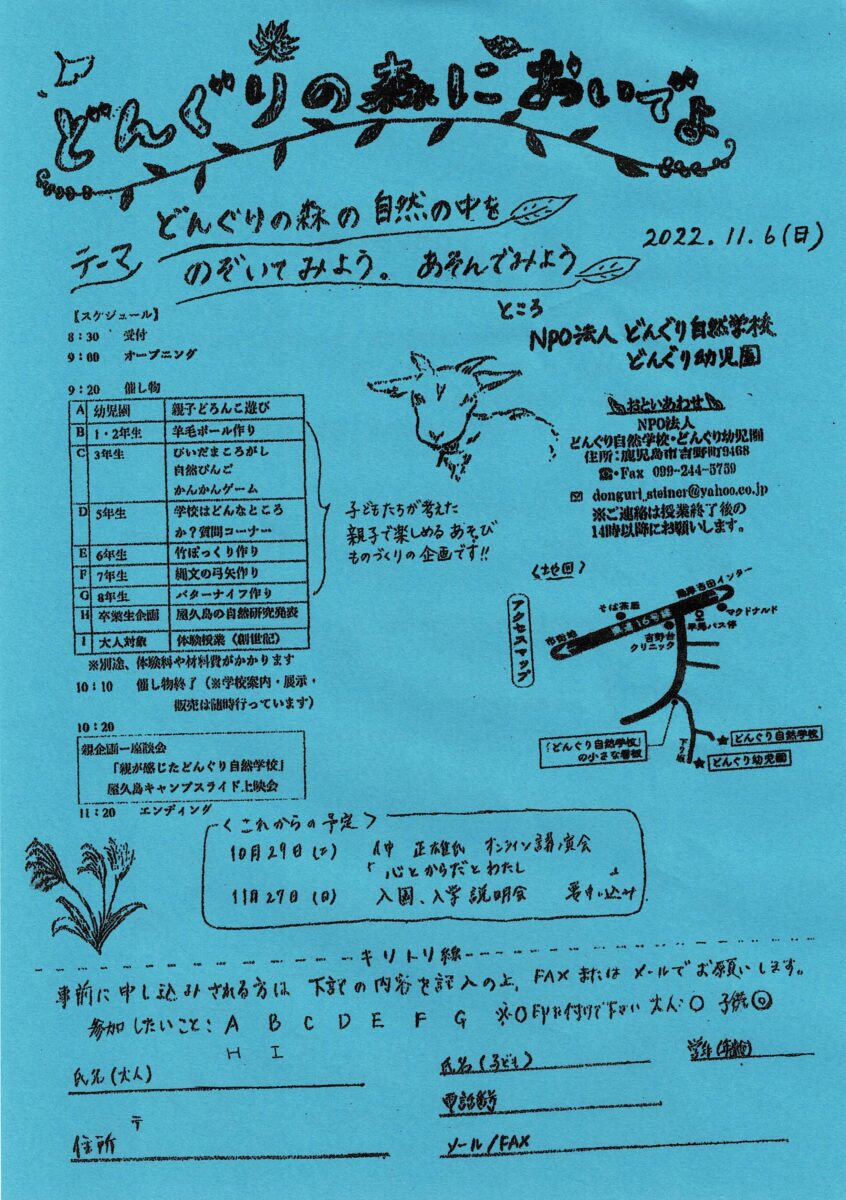 どんぐりの森においでよ
テーマ
どんぐりの森の自然の中を
のぞいてみよう。あそんでみよう
2022.11.6(日)
【スケジュール】
8:30 受付
9:00 オープニング
9:20 催し物
A 幼児園 親子どろんこ遊び
B 1・2年生 羊毛ボール作り
C 3年生 びいだまころがし
自然びんご
かんかんゲーム
D 5年生 学校はどんなところ
か?質問コーナー
E 6年生 竹ぽっくり作り
F 7年生 縄文の弓矢作り
G 8年生 バターナイフ作り
H 卒業生企画 屋久島の自然研究発表
I 大人対象 体験授業(創世記)
※別途、体験料や材料費がかかります
10:10 催し物終了(※学校案内・展示・
販売は随時行っています)
10:20
親企画ー座談会
「親が感じたどんぐり自然学校」
屋久島キャンプスライド上映会
11:20 エンディング
子どもたちが考えた
親子で楽しめるあそび
ものづくりの企画です!!
ところ
NPO法人 どんぐり自然学校
どんぐり幼児園
おといあわせ
NPO法人
どんぐり自然学校・どんぐり幼児園
住所:鹿児島市吉野町9468
☎・Fax 099-244-5759
✉ donguri_steiner@yahoo.co.jp
※ご連絡は授業終了後の
14時以降にお願いします。
<地図>
アクセスマップ
市街地
そば茶屋
国道16号線
吉野台
クリニック
早馬バス停
マクドナルド
下り坂
「どんぐり自然学校」
の小さな看板
★どんぐり自然学校
★どんぐり幼児園
<これからの予定>
10月29日(土) 正雄氏 オンライン講演会
「心とからだとわたし」
11月27日(日) 入園、入学説明会 要申し込み
キリトリ線
事前に申し込みされる方は 下記の内容を記入の上、FAXまたはメールでお願いします。
参加したいこと: A B C D E F G ※○印を付けて下さい 大人:○ 子供◎
H I
氏名(大人)
氏名(子ども)
学年(年齢)
電話番号
住所 〒
メール/FAX